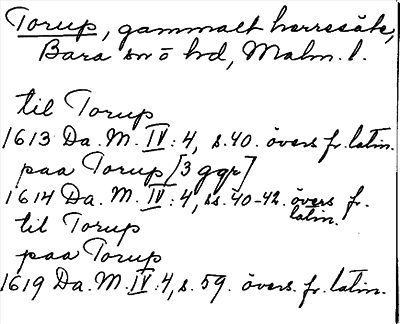 Torup, gammalt herresäte,
Bara sn o hd, Malm. l.
til Torup
1613 Da. M. IV:4, s. 40. övers. fr. latin.
paa Torup [3 ggr]
1614 Da. M. IV:4, ss. 40-42. övers fr. latin.
til Torup
paa Torup
1619 Da. M. IV:4, s. 59. övers. fr. latin.